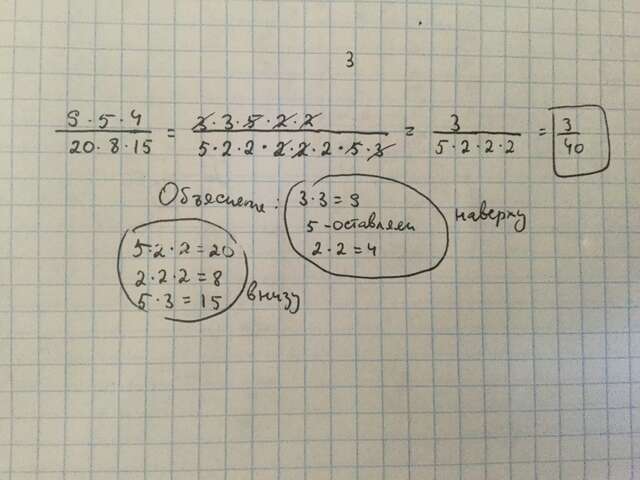 3
9·5·4/20·8·15 = 3·3·5·2·2/5·2·2·2·2·2·5·3 = 3/5·2·2·2 = 3/40
Объяснение:
3·3=9
5-оставляем
2·2=4
наверху
5·2·2=20
2·2·2=8
5·3=15
внизу